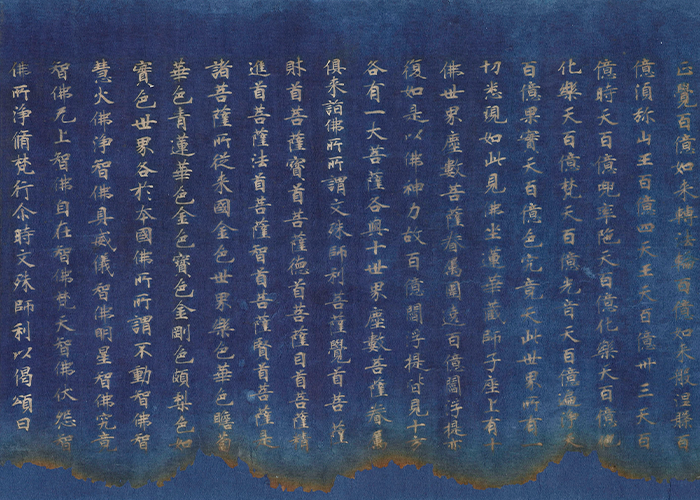 正覺百億如來轉法輪百億如來般泥洹百
億須弥山王百億四天王天百億卅三天百
億時天百億兜率陁天百億化樂天百億他
化樂天百億梵天百億光音天百億遍淨天
百億果實天百億色究竟天此世界所有一
切悉現如此見佛坐蓮華藏師子座上有十
佛世界塵數菩薩眷屬圍遶百億閻浮提亦
復如是以佛神力故百億閻浮提皆見十方
各有一大菩薩各與十世界塵數菩薩眷屬
俱來詣佛所所謂文殊師利菩薩覺首菩薩
財首菩薩寶首菩薩德首菩薩目首菩薩
進首菩薩法首菩薩智首菩薩賢首菩薩是
諸菩薩所從來國金色世界樂色華色瞻蔔
華色青蓮華色金色寶色金剛色頗梨色如
寶色世界各於本國佛所所謂不動智佛智
慧火佛淨智佛具威儀智佛明星智佛究竟
智佛无上智佛自在智佛梵天智佛伏怨智
佛所淨脩梵行尒時文殊師利以偈頌曰